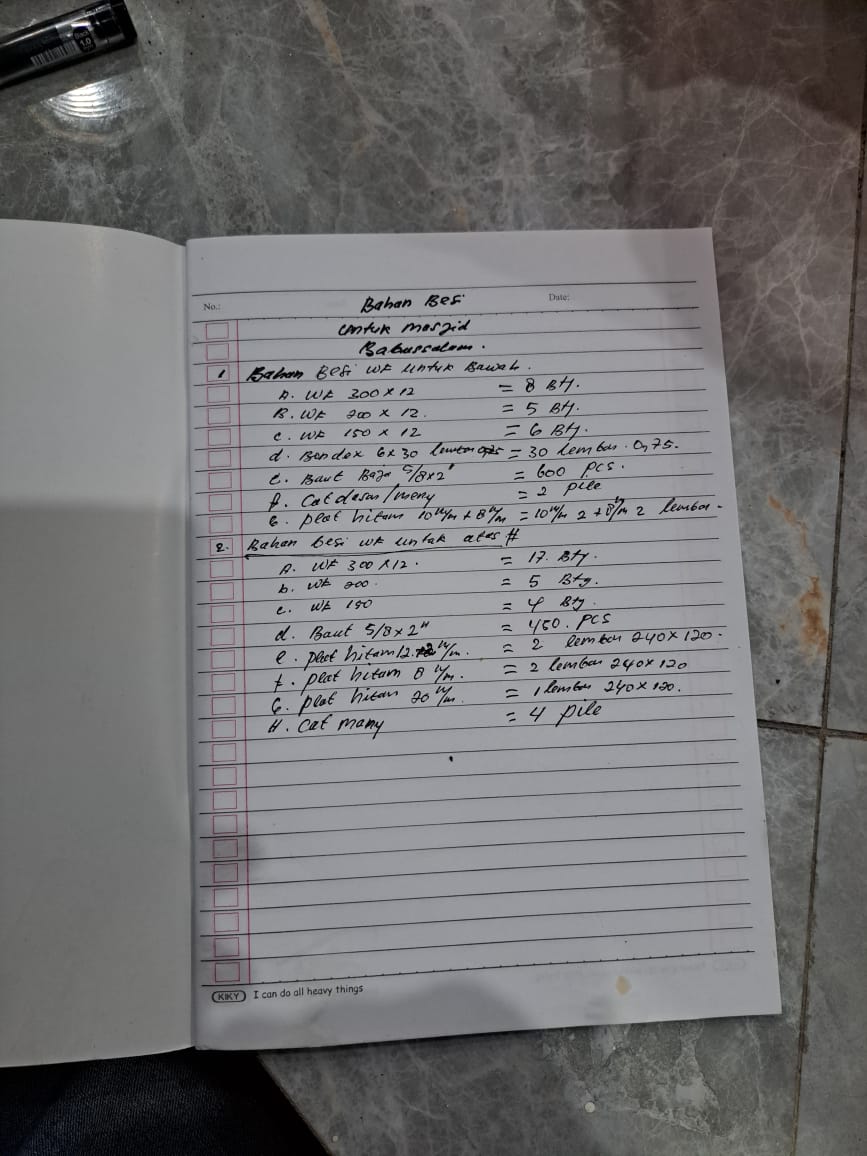 Back
1.0
No.:
Bahan Besi
Date:
untuk masjid
Babussalam.
1 Bahan Besi WF untuk Bawah.
A. WF 300 x 12 = 8 Btg.
B. WF 200 x 12. = 5 Btg.
C. WF 150 x 12 = 6 Btg.
d. Bondex 6x30 = 30 lembar. 0,75.
E. Baut Baja 5/8x2" = 600 pcs.
f. Cat dasar/meny = 2 pile
G. plat hitam 10 m/m + 8 m/m = 10 m/m 2 + 8 m/m 2 lembar -
2. Bahan besi WF untuk atas #
A. WF 300 x 12. = 17. Btg.
b. WF 200. = 5 Btg.
c. WF 150 = 4 Btg.
d. Baut 5/8 x 2" = 450. PCS
e. plat hitam 12. m/m. = 2 lembar 240 x 120.
f. plat hitam 8 m/m. = 2 lembar 240 x 120
G. plat hitam 20 m/m. = 1 lembar 240 x 120.
H. Cat many = 4 pile
KIKY I can do all heavy things